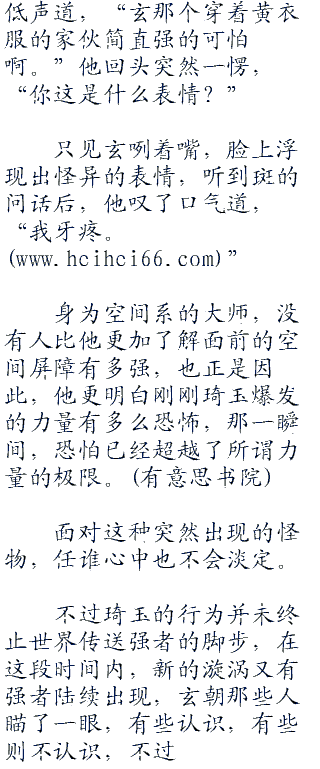 低声道，“玄那个穿着黄衣
服的家伙简直强的可怕
啊。”他回头突然一愣，
“你这是什么表情？”
只见玄咧着嘴，脸上浮
现出怪异的表情，听到斑的
问话后，他叹了口气道，
“我牙疼。
(www.hcihci66.com)”
身为空间系的大师，没
有人比他更加了解面前的空
间屏障有多强，也正是因
此，他更明白刚刚琦玉爆发
的力量有多么恐怖，那一瞬
间，恐怕已经超越了所谓力
量的极限。(有意思书院)
面对这种突然出现的怪
物，任谁心中也不会淡定。
不过琦玉的行为并未终
止世界传送强者的脚步，在
这段时间内，新的漩涡又有
强者陆续出现，玄朝那些人
瞄了一眼，有些认识，有些
则不认识，不过